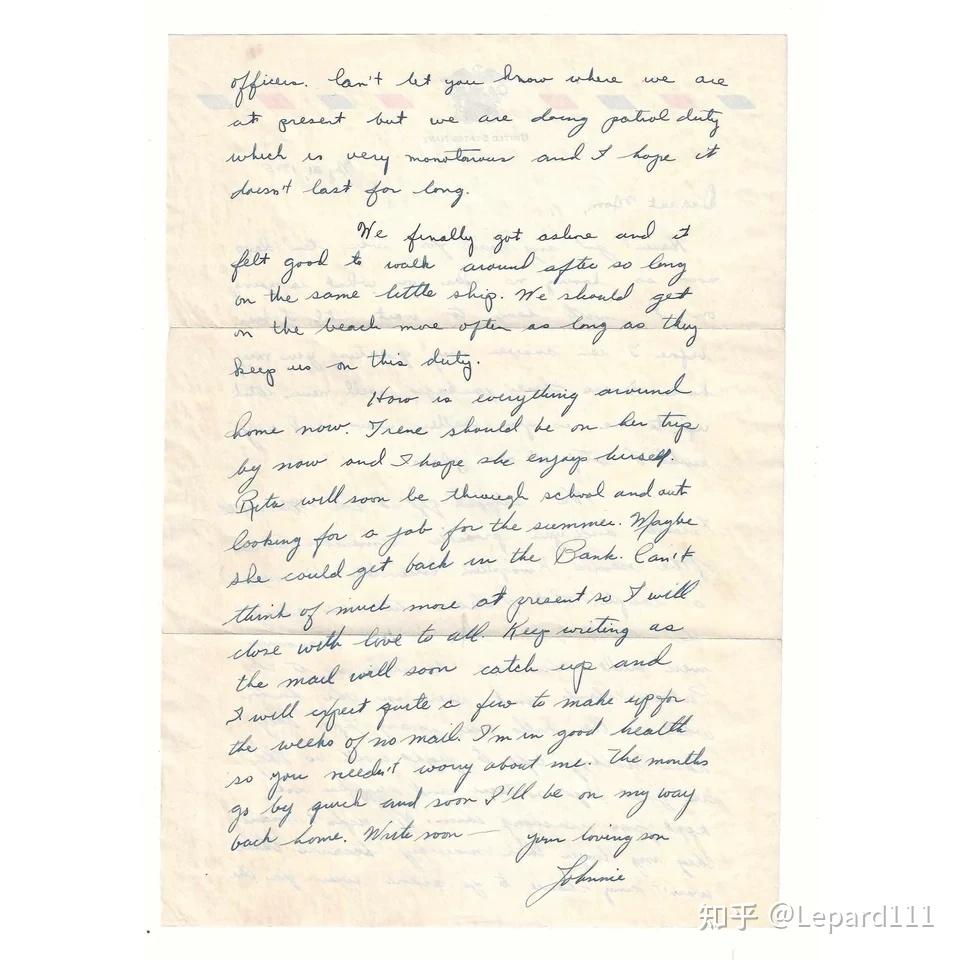 officers. Can't let you know where we are
at present but we are doing patrol duty
which is very monotonous and I hope it
doesn't last for long.
We finally got ashore and it
felt good to walk around after so long
on the same little ship. We should get
on the beach more often as long as they
keep us on this duty.
How is everything around
home now. Irene should be on her trip
by now and I hope she enjoys herself.
Rita will soon be through school and out
looking for a job for the summer. Maybe
she could get back in the Bank. Can't
think of much more at present so I will
close with love to all. Keep writing as
the mail will soon catch up and
I will expect quite a few to make up for
the weeks of no mail. I'm in good health
so you needn't worry about me. The months
go by quick and soon I'll be on my way
back home. Write soon — your loving son
Johnnie
知乎 @Lepard111